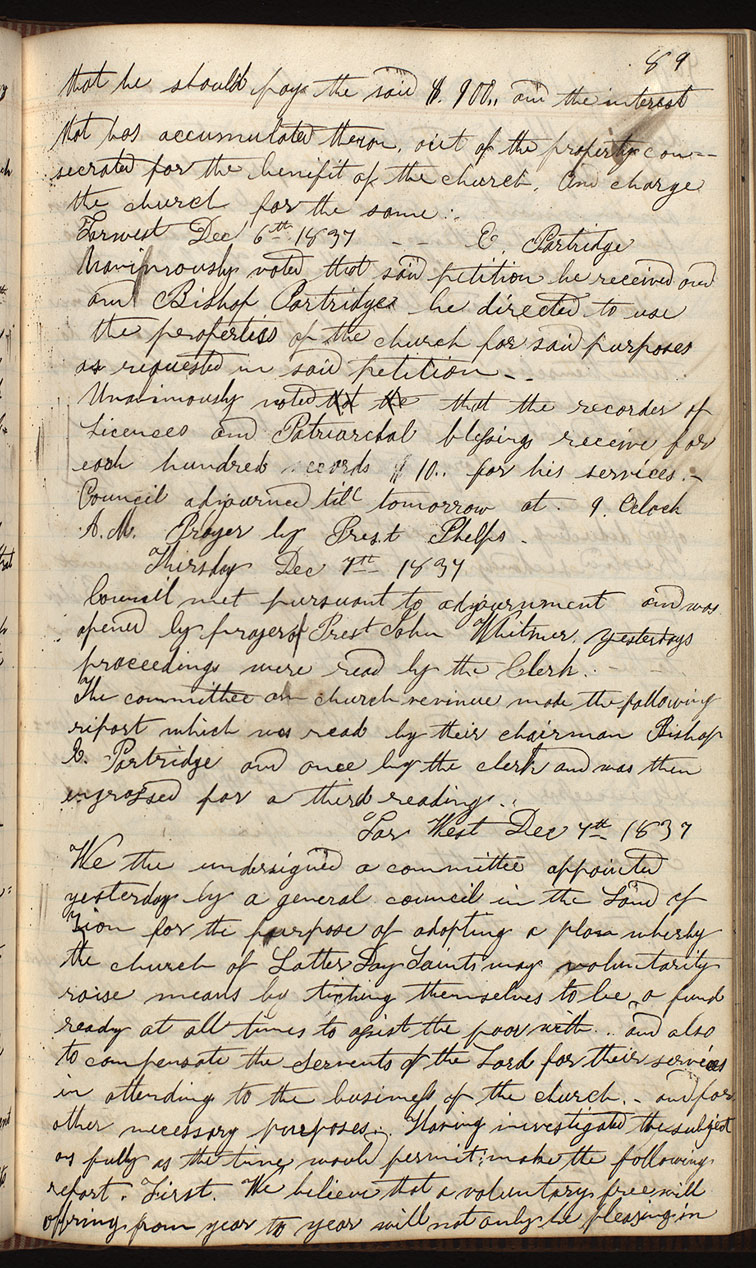 89
that he should pay the said $. 900,, and the interest
that has accumulated theron, out of the property con--
secrated for the benifit of the church. And charge
the church for the same:.
Farwest Dec 6th 1837 - - E. Partridge
Unanimously voted that said petition be received and
and Bishop Partridge be directed to use
the properties of the church for said purposes
as requested in said petition - -
Unanimously voted that the recorder of
Licences and Patriarchal blessings receive for
each hundred records $ 10.. for his services.-
Council adjourned till tomorrow at. 9. Oclock
A.M. Prayer by Prest Phelps -
Thirsday Dec 7th 1837
Council met pursuant to adjournment and was
opened by prayer Prest John Whitmer, yesterdays
proceedings were read by the Clerk. - -
The committee on church revinue made the following
riport which was read by their chairman Bishop
E. Partridge and once by the clerk and was then
engrossed for a third reading..
Far West Dec 7th 1837
We the undersigned a committee appointed
yesterday by a general council in the Land of
Zion for the purpose of adopting a plan wherby
the church of Latter Day Saints may voluntarity
raise means by tithing themselves to be a fund
ready at all times to assist the poor with.. and also
to compensate the Servents of the Lord for their services
in attending to the business of the church. - and for
other necessary purposes.. Having investigated the subject
as fully as the time would permit: make the following
report. First. We believe that a voluntary free will
offring from year to year will not only be pleasing in